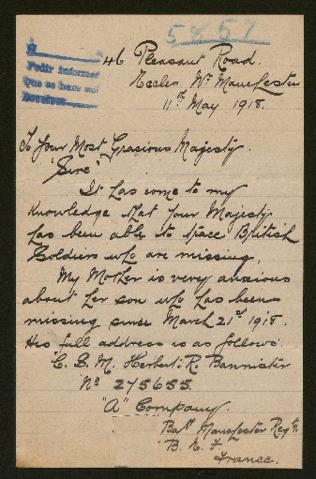 5857
Pedir informes
Que se hace asi
46 Pleasant Road.
Eccles. Nr Manchester
11th May 1918.
To Your Most Gracious Majesty.
"Sire"
It has come to my
Knowledge that Your Majesty
has been able to trace British
Soldiers who are missing.
My Mother is very anxious
about her son who has been
missing since March 21st 1918.
His full address is as follows
C. S. M. Herbert. R. Bannister
No 275655.
"A" Company.
Manchester Regt.
B. E. F.
France.